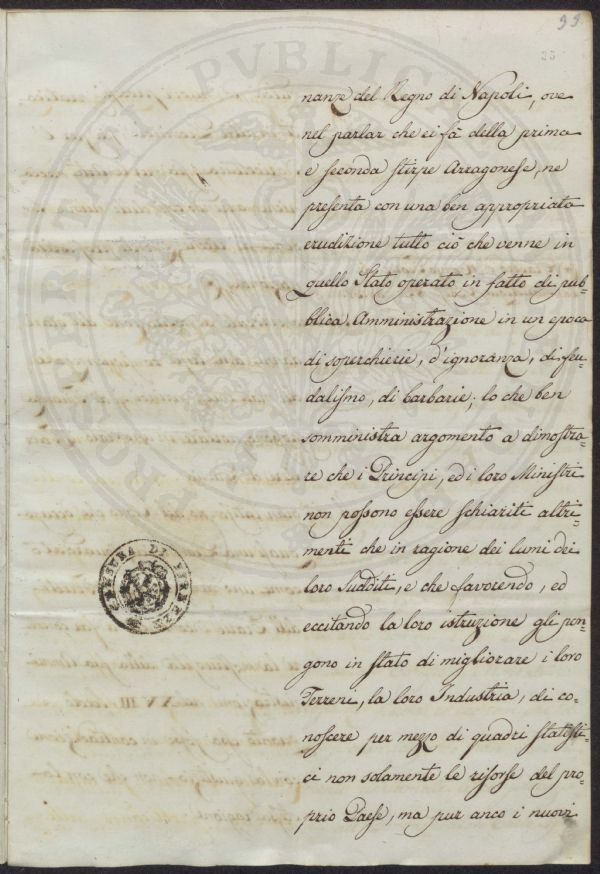 95
33
nanze del Regno di Napoli, ove
nel parlar che ei fà della prima
e seconda stirpe Arragonese, ne
presenta con una ben appropriata
erudizione tutto ciò che venne in
quello Stato operato in fatto di pub-
blica Amministrazione in un epoca
di soperchierie, d'ignoranza, di feu-
dalismo, di barbarie; lo che ben
somministra argomento a dimostra-
re che i Principi, ed i loro Ministri
non possono essere schiariti altri-
menti che in ragione dei lumi dei
loro Sudditi, e che favorendo, ed
eccitando la loro istruzione gli pon-
gono in stato di migliorare i loro
Terreni, la loro Industria, di co-
noscere per mezzo di quadri statisti-
ci non solamente le risorse del pro-
prio Paese, ma pur anco i nuovi
CENSURA DI FIRENZE